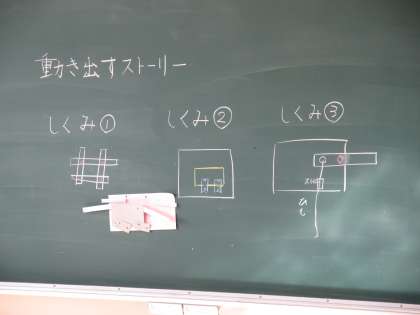 動き出すストーリー
しくみ①
しくみ②
しくみ③